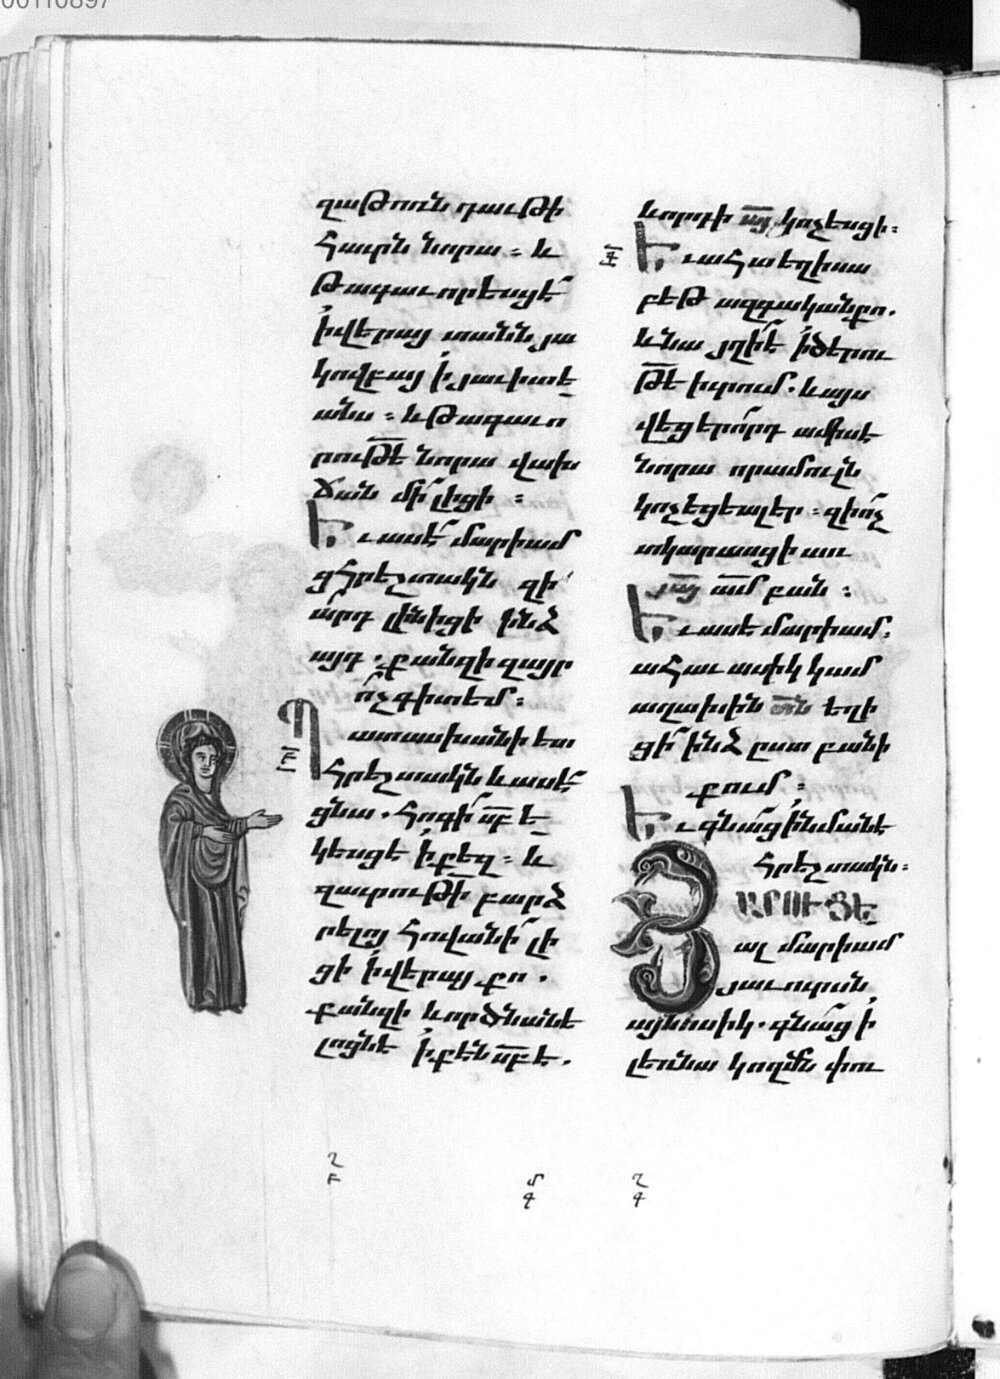 00110897
զաթոռն դաւթի
հաւրն նորա ։ և
թագաւորեսցէ՛
ի՛վերայ տանն յա
կովբայ ի՛ յաւիտե
անս ։ և թագաւո
րութե նորա վախ
ճան մի՛ լիցի ։
Եւ ասէ՛ մարիամ
ցհրեշտակն զի՛
ա՛րդ լինիցի ինձ
այդ . քանզի զայր
ո՛չ գիտեմ ։
Պատասխանի ետ
հրեշտակն և ասէ՛
ցնա . հոգի՛ սբ ե
կեսցէ ի՛ քեզ ։ և
զաւրութի՛ բարձ
րելոյ հովանի՛ լի
ցի ի՛վերայ քո .
քանզի և որ ծնանե
լոցնէ ի՛ քէն սբ է .
և որդի այ կոչեսցի ։
Եւ ահա եղիսա
բեթ ազգականքո .
և նա յղի՛ է ի՛ ծերու
թե իւրում . և այս
վեցերո՛րդ ամիս է
նորա որ ամուլն
կոչեցեալ էր ։ զի ո՛չ
տկարասցի առ
յայ ամ բան ։
Եւ ասէ մարիամ .
ահաւասիկ կամ
աղախին տն եղի
ցի՛ ինձ ըստ բանի
քում ։
Եւ գնա՛ց ի՛նմանէ
հրեշտակն ։
ՅԱՐՈՒՑԵ
ալ մարիամ
յաւուրսն
այնոսիկ . գնա՛ց ի՛
լեռնա կողմն փու